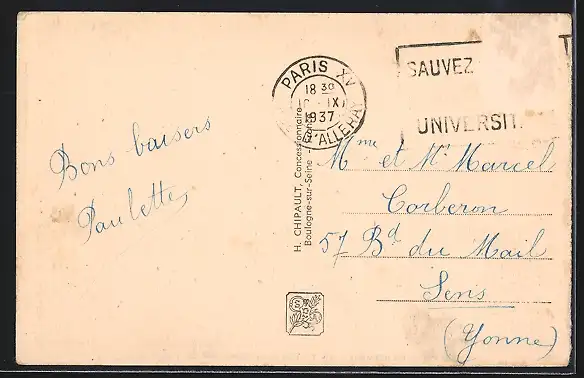 Bons baisers
Paulette
PARIS XV
18 30
IX
1937
D'ALLERAY
SAUVEZ
UNIVERSIT
H. CHIPAULT, Concessionnaire
Boulogne-sur-Seine - France
Mme et Mr Marcel
Corberon
57 Bd du Mail
Sens
(Yonne)